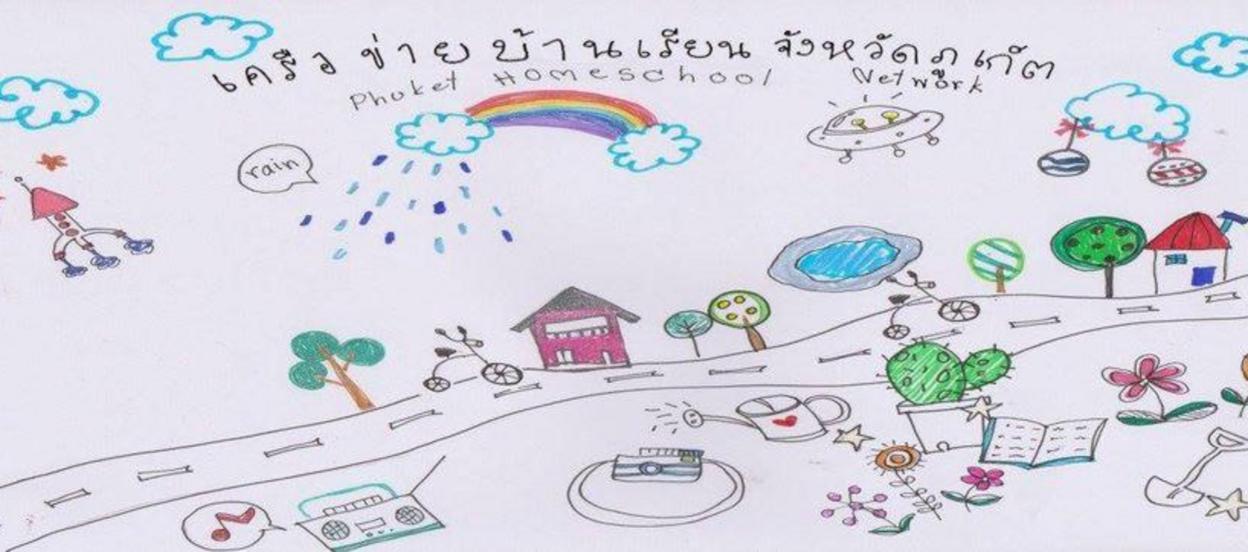 เครือข่ายบ้านเรียนจังหวัดภูเก็ต
Phuket Homeschool Network
rain